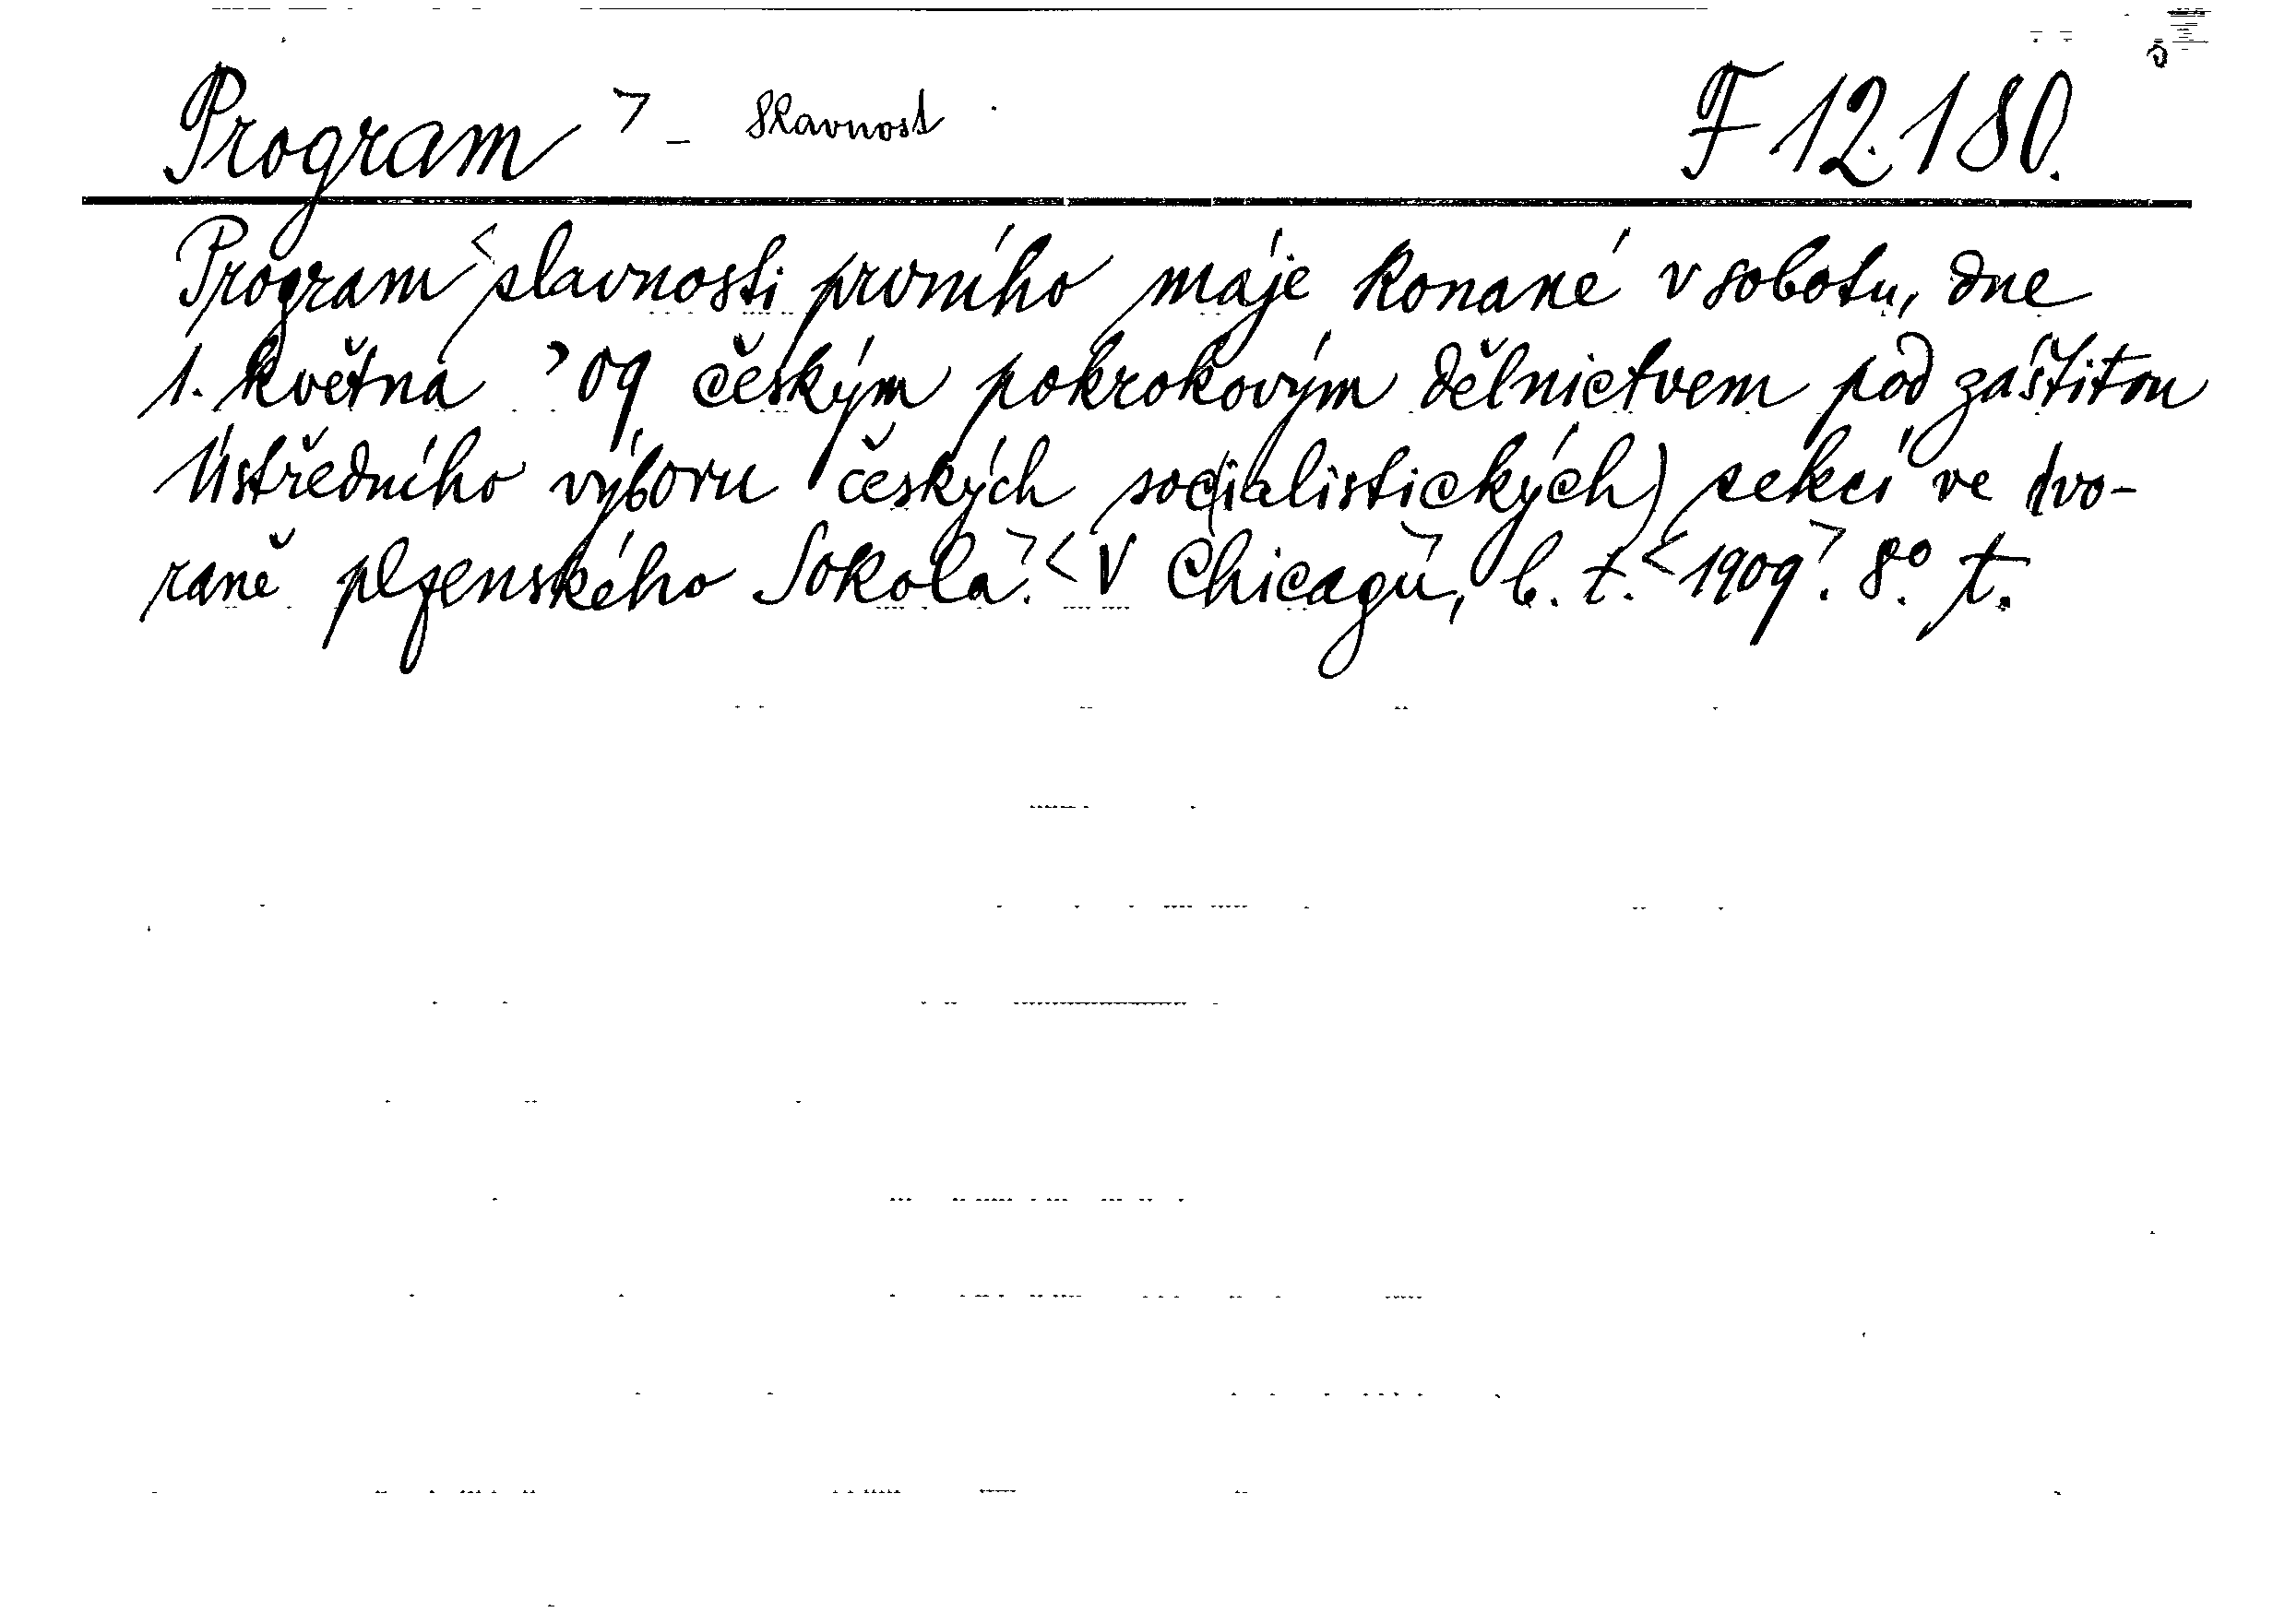 Program > - Slavnost
F 12.180.
Program < slavnosti prvního máje konané v sobotu, dne
1. května '09 českým pokrokovým dělnictvem pod záštitou
Ústředního výboru českých soc(ialistických) sekcí ve dvo-
raně plzenského Sokola >. < V Chicagu >, b. t. < 1909 >. 8°. t.